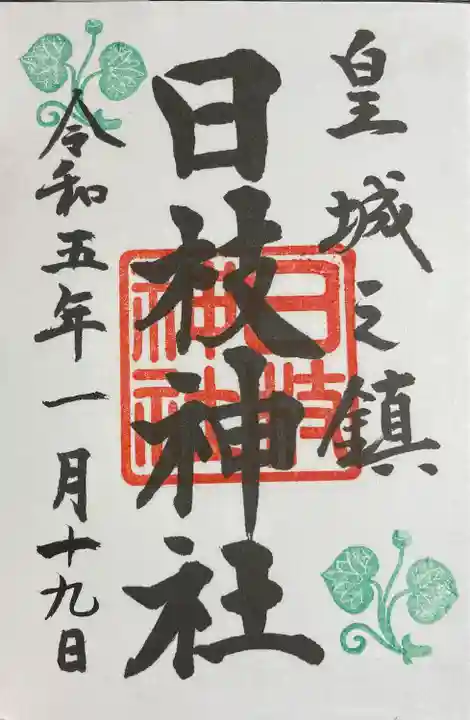 皇城之鎮
日枝神社
日枝神社
令和五年一月十九日